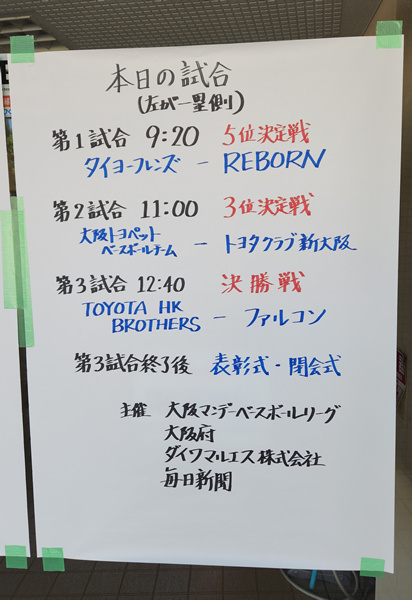 本日の試合
(左が一塁側)
第1試合 9:20 5位決定戦
タイヨーフレンズ − REBORN
第2試合 11:00 3位決定戦
大阪トヨペット
ベースボールチーム − トヨタクラブ新大阪
第3試合 12:40 決勝戦
TOYOTA HK
BROTHERS − ファルコン
第3試合終了後 表彰式・閉会式
主催 大阪マンデーベースボールリーグ
大阪府
ダイワマルエス株式会社
毎日新聞